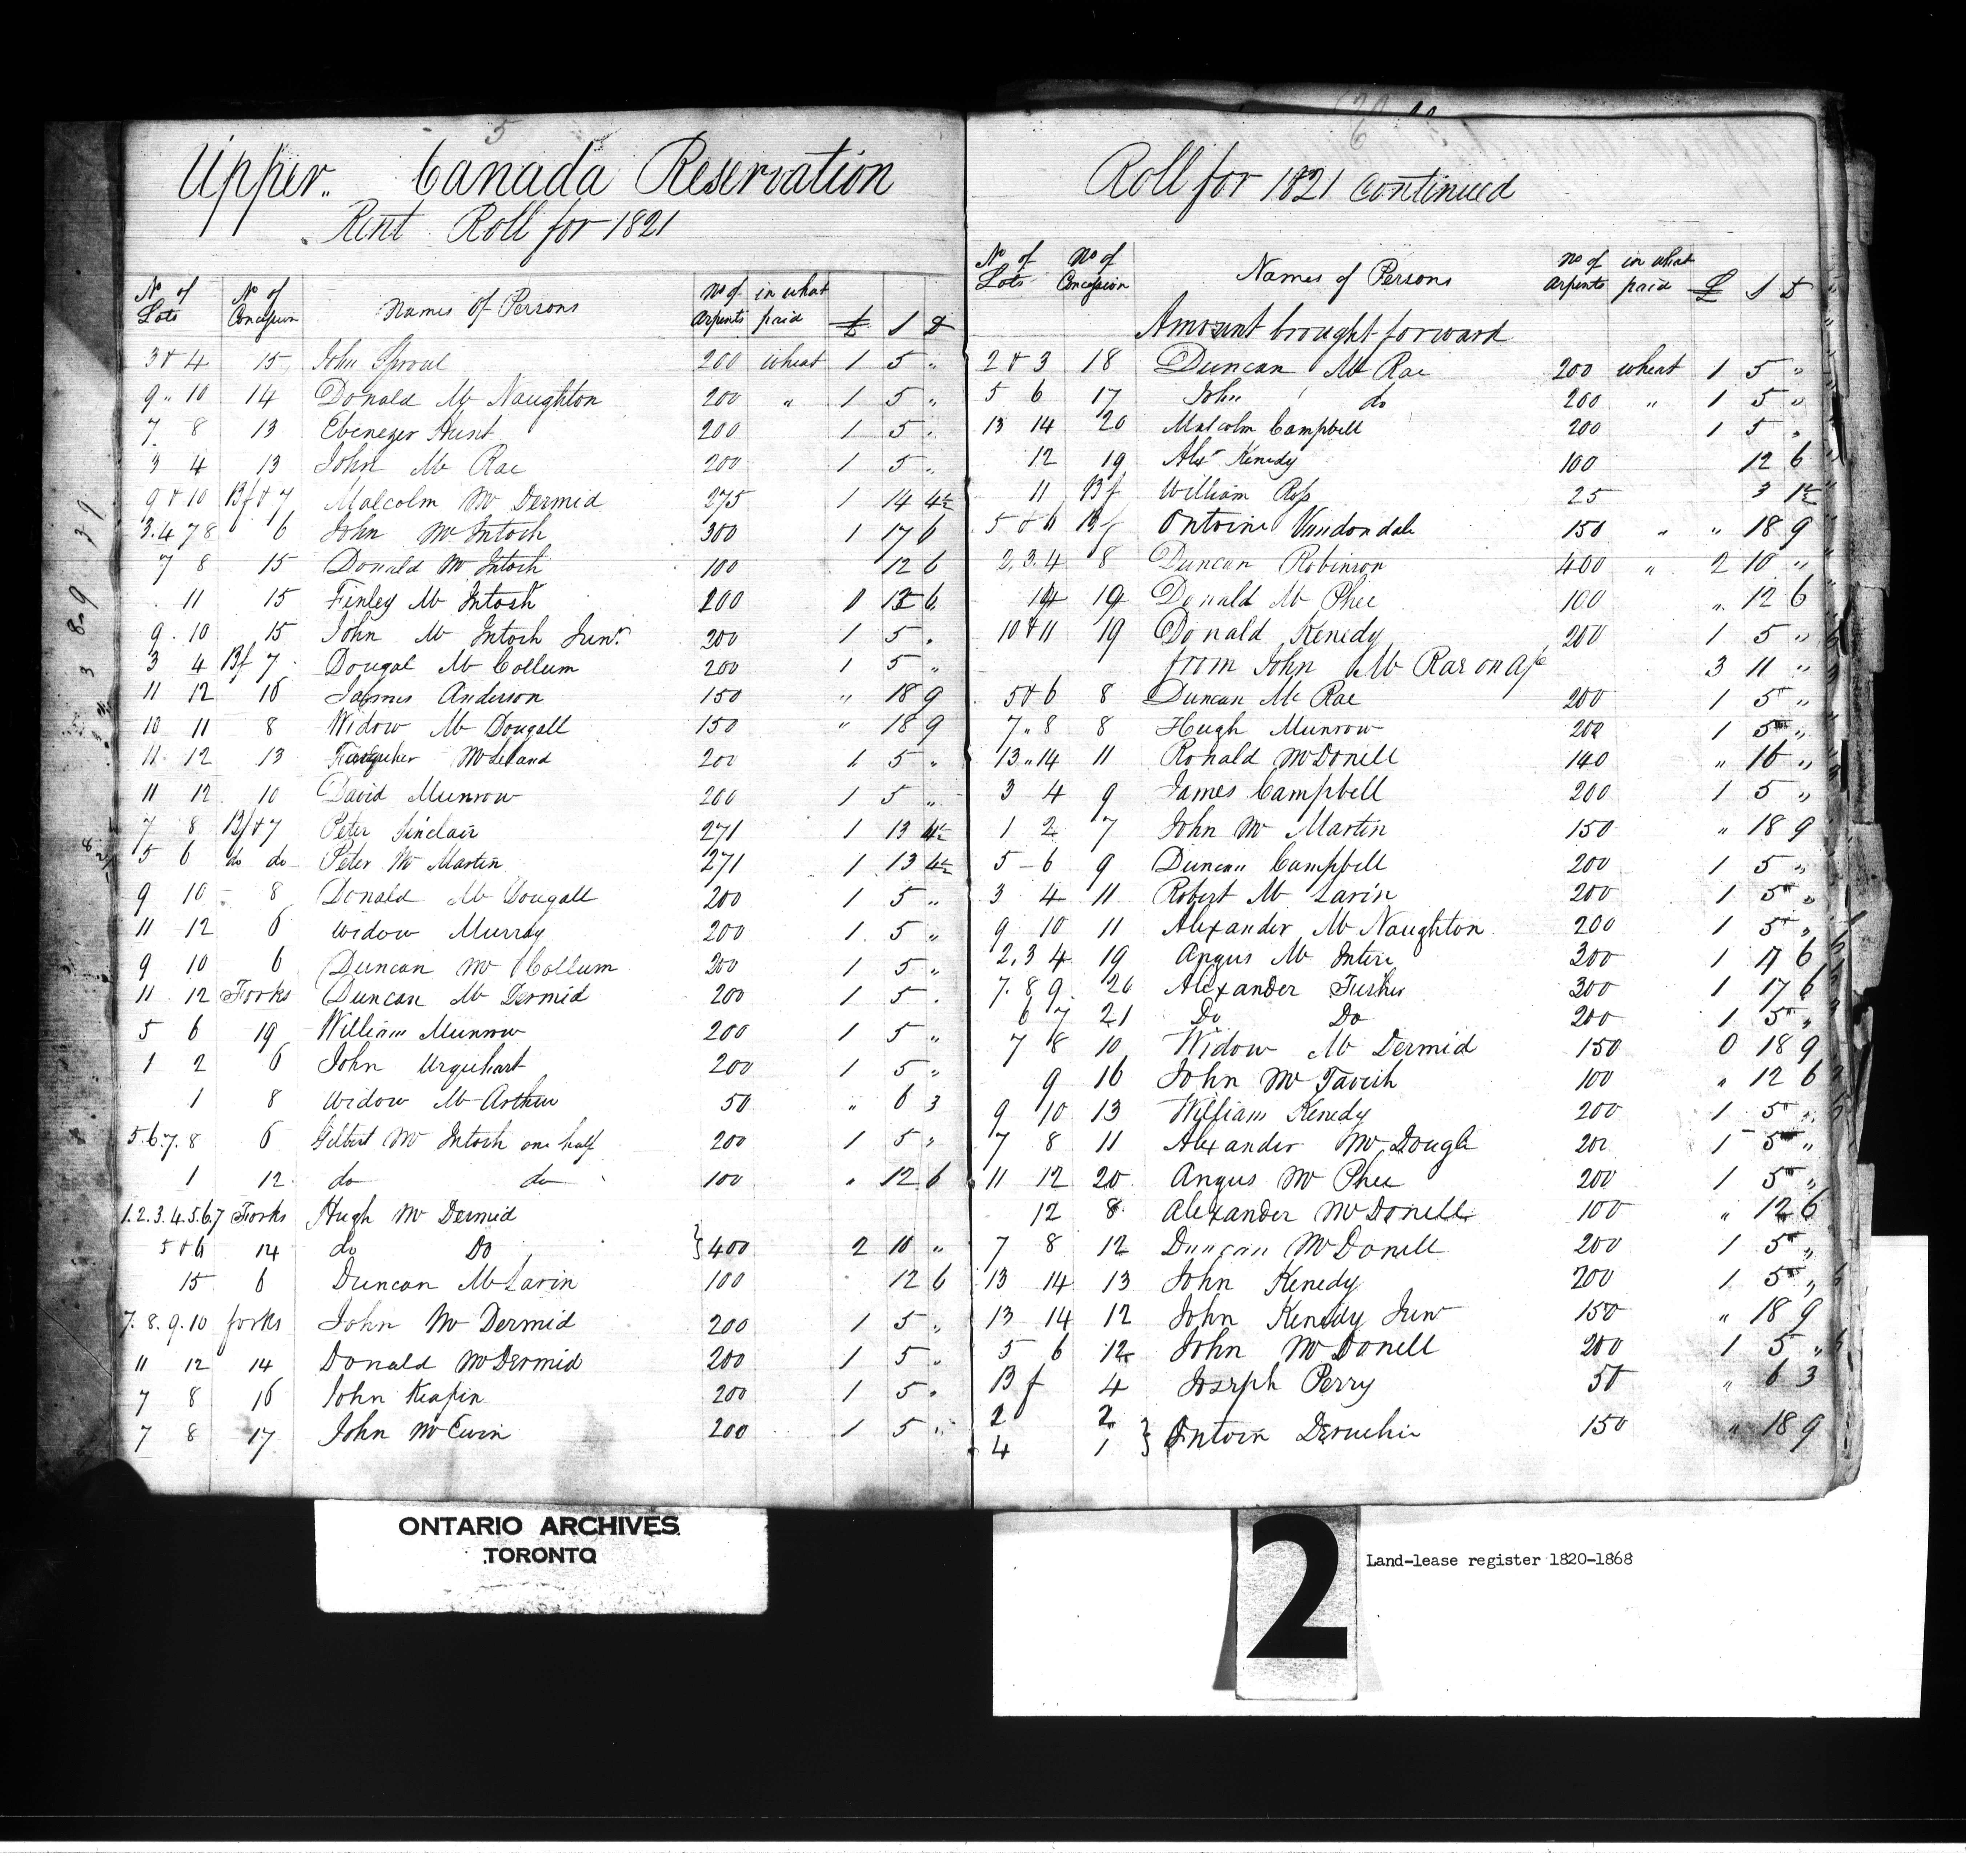 5
Upper Canada Reservation
Rent Roll for 1821
No of Lots No of Concession Names of Persons No of Arpents in what paid £ S D
3 & 4 15 John Sproul 200 wheat 1 5 "
9 " 10 14 Donald Mc Naughton 200 " 1 5 "
7 8 13 Ebenezer Hunt 200 1 5 "
3 4 13 John Mc Rae 200 1 5 "
9 & 10 Bf & 7 Malcolm Mc Dermid 275 1 14 4½
3. 4 7 8 6 John Mc Intosh 300 1 17 6
7 8 15 Donald Mc Intosh 100 12 6
11 15 Finley Mc Intosh 200 12 6
9 . 10 15 John Mc Intosh Junr. 200 1 5 "
3 4 Bf 7 Dougal Mc Collum 200 1 5 "
11 12 16 James Anderson 150 " 18 9
10 11 8 Widow Mc Dougall 150 " 18 9
11 . 12 13 Mc Leland 200 1 5 "
11 12 10 David Munrow 200 1 5 "
7 8 Bf & 7 Peter Sinclair 271 1 13 4½
5 6 do do Peter Mc Martin 271 1 13 4½
9 10 8 Donald Mc Dougall 200 1 5 "
11 12 6 Widow Murray 200 1 5 "
9 10 6 Duncan Mc Collum 200 1 5 "
11 . 12 Forks Duncan Mc Dermid 200 1 5 .
5 6 19 William Munrow 200 1 5 "
1 2 6 John Urquhart 200 1 5 "
1 8 Widow Mc Arthur 50 " 6 3
5. 6. 7. 8 6 Gilbert Mc Intosh one half 200 1 5 "
1 12 do do 100 " 12 6
1. 2. 3. 4. 5. 6. 7 Forks Hugh Mc Dermid
5 & 6 14 do Do } 400 2 10 "
15 6 Duncan Mc Larin 100 12 6
7. 8. 9. 10 forks John Mc Dermid 200 1 5 "
11 12 14 Donald Mc Dermid 200 1 5 "
7 8 16 John Keafin 200 1 5 "
7 8 17 John Mc Ewin 200 1 5 "
Roll for 1821 Continued
No of Lots No of Concession Names of Persons No of Arpents in what paid £ S D
Amount brought forward
2 & 3 18 Duncan Mc Rae 200 wheat 1 5 "
5 6 17 John do 200 " 1 5 "
13 14 20 Malcolm Campbell 200 1 5 "
12 19 Alexr Kenedy 100 12 6
11 Bf William Ross 25 3 1½
5 & 6 Bf Ontoine Vandondale 150 " " 18 9
2. 3. 4 8 Duncan Robinson 400 " 2 10 "
14 19 Donald Mc Phee 100 " 12 6
10 & 11 19 Donald Kenedy 200 1 5 "
from John Mc Rae on a/c 3 11 "
5 & 6 8 Duncan Mc Rae 200 1 5 "
7 " 8 8 Hugh Munrow 200 1 5 "
13 " 14 11 Ronald Mc Donell 140 " 16 "
3 4 9 James Campbell 200 1 5 "
1 2 7 John Mc Martin 150 " 18 9
5 - 6 9 Duncan Campbell 200 1 5 "
3 4 11 Robert Mc Larin 200 1 5 "
9 10 11 Alexander Mc Naughton 200 1 5 "
2. 3 4 19 Angus Mc Intire 300 1 17 6
7. 8 9. 20 Alexander 300 1 17 6
6 7 21 Do Do 200 1 5 "
7 8 10 Widow Mc Dermid 150 0 18 9
9 16 John Mc Tavish 100 " 12 6
9 10 13 William Kenedy 200 1 5 "
7 8 11 Alexander Mc Dougle 200 1 5 "
11 12 20 Angus Mc Phee 200 1 5 "
12 8 Alexander Mc Donell 100 " 12 6
7 8 12 Duncan Mc Donell 200 1 5 "
13 14 13 John Kenedy 200 1 5 "
13 14 12 John Kenedy Junr 150 " 18 9
5 6 12 John Mc Donell 200 1 5 "
Bf 4 Joseph Perry 50 " 6 3
2 2
4 1 } Ontoin Deruchie 150 " 18 9
ONTARIO ARCHIVES
TORONTO
2
Land-lease register 1820-1868